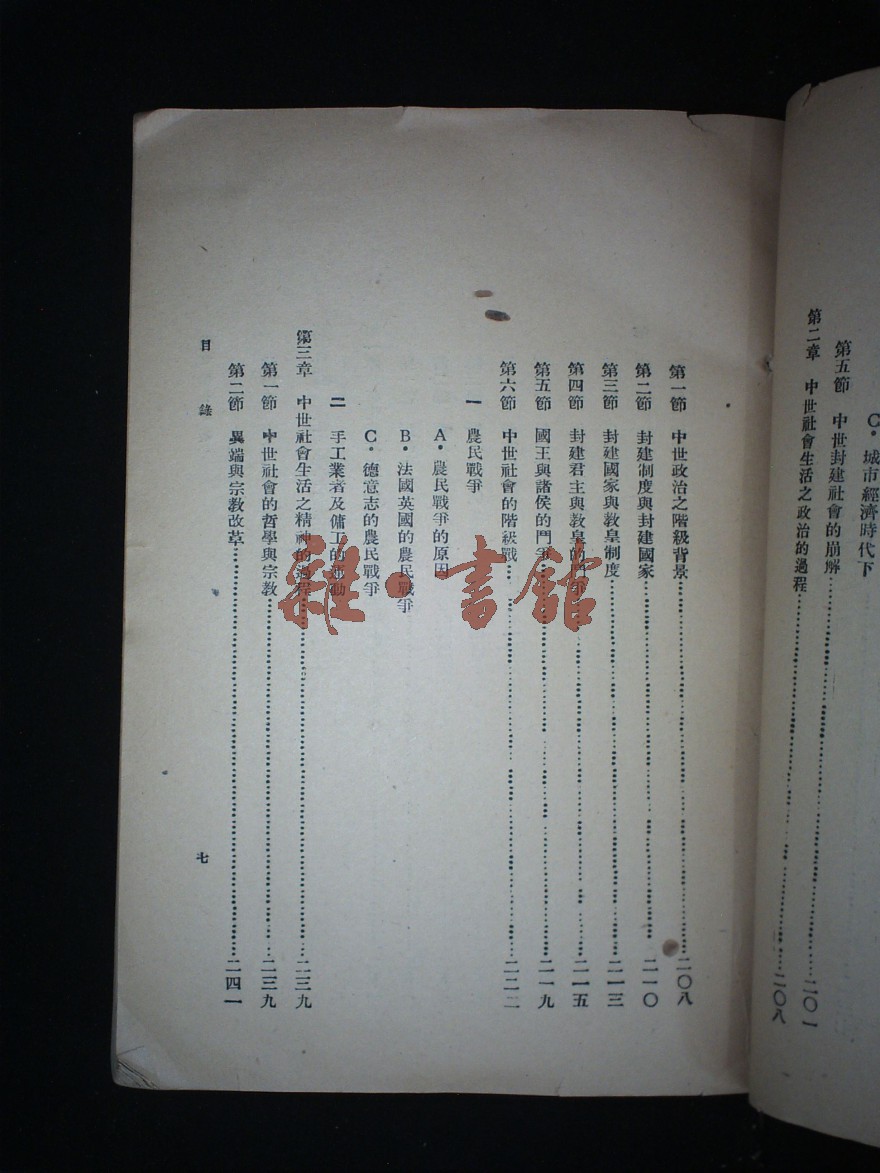 C．城市經濟時代下
第五節　中世封建社會的崩解……二〇一
第二章　中世社會生活之政治的過程……二〇八
第一節　中世政治之階級背景……二〇八
第二節　封建制度與封建國家……二一〇
第三節　封建國家與教皇制度……二一三
第四節　封建君主與教皇的鬥爭……二一五
第五節　國王與諸侯的鬥爭……二一九
第六節　中世社會的階級戰……二二二
一　農民戰爭
A．農民戰爭的原因
B．法國英國的農民戰爭
C．德意志的農民戰爭
二　手工業者及傭工的運動
第三章　中世社會生活之精神的過程……二三九
第一節　中世社會的哲學與宗教……二三九
第二節　異端與宗教改革……二四一
目錄
七
雜·書館